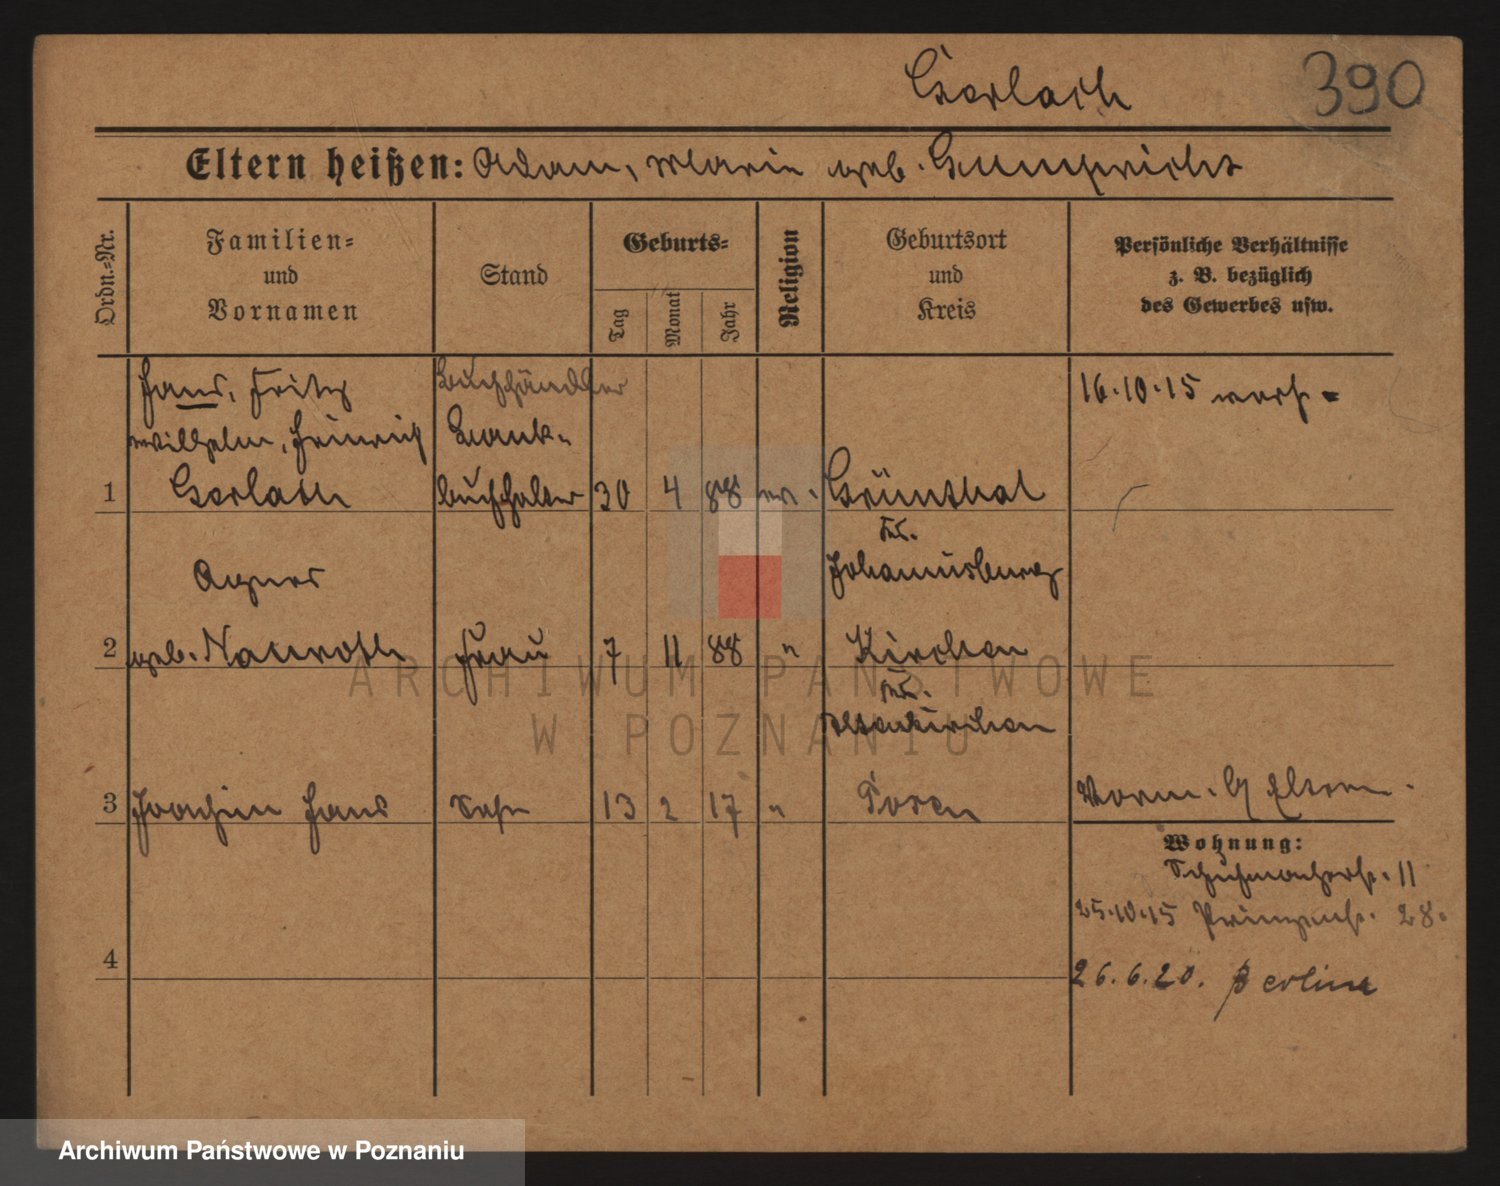 Gerlach
390
Eltern heißen: Adam, Marie geb. Gumpricht
Ordn.=Nr.
Familien=
und
Vornamen
Stand
Geburts=
Tag
Monat
Jahr
Religion
Geburtsort
und
Kreis
Persönliche Verhältnisse
z. B. bezüglich
des Gewerbes usw.
Hans, Fritz
Wilhelm, Heinrich
1 Gerlach
Buchhändler
Bank-
buchhalter
30 4 88 ev.
Grünthal
Kr.
Johannisburg
16.10.15 verh.
Agnes
2 geb. Nawroth
Frau
7 11 88 "
Kirchen
Kr.
Altenkirchen
3 Joachim Hans
Sohn
13 2 17 "
Posen
Vorm. Eltern.
Wohnung:
Schuhmacherstr. 11
25.10.15 Prinzenstr. 28.
4
26.6.20. Berlin
ARCHIWUM PAŃSTWOWE
W POZNANIU
Archiwum Państwowe w Poznaniu